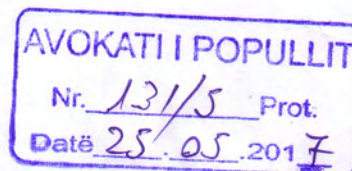 AVOKATI I POPULLIT
Nr. 131/5 Prot.
Datë 25.05.2017